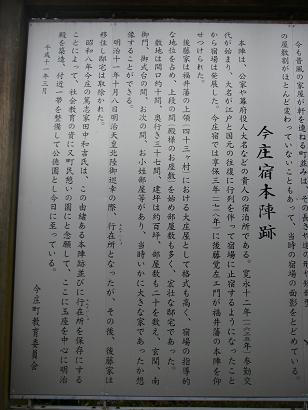 今も昔風の家屋が軒を連ねる町並みは、その長さや道の形や
の屋敷割がほとんど変わっていないこともあって、当時の宿場の面影をとどめている。
今庄宿本陣跡
本陣は、公家や幕府役人大名などの貴人の宿泊所である。寛永十二年(一六三五年)参勤交
代が始まり、大名が江戸と国元の往復に行列を作って宿場に止宿するようになったこと
から宿場は発展した。今庄宿では享保三年(一七一八年)に後藤覚左エ門が福井藩の本陣を仰
せつけられた。
後藤家は福井藩の上領(四十三ヶ村)における大庄屋として格式も高く、宿場の指導的
な地位を占め、上段の間(殿様のお座敷)を始め部屋数も多く、宏壮な邸宅であった。
敷地は間口約十間、奥行き三十七間、建坪は約百坪、部屋数も二十を数え、玄関、南
御門、御式台の間、お次の間、お小姓部屋等があり、当時いかに大きな家であったか想
像することができる。
明治十一年十月八日明治天皇北陸御巡幸の際、行在所となったが、その後、後藤家は
移住し邸宅は取除かれた。
昭和八年今庄の篤志家田中和吉氏は、この由緒ある本陣跡並びに行在所を保存にする
ことによって、社会教育の資に又町民憩いの園にと念願して、ここに玉座を中心に明治
殿を築造、付近一帯を整備して公徳園とし今日に至っている。
平成十一年三月
今庄町教育委員会